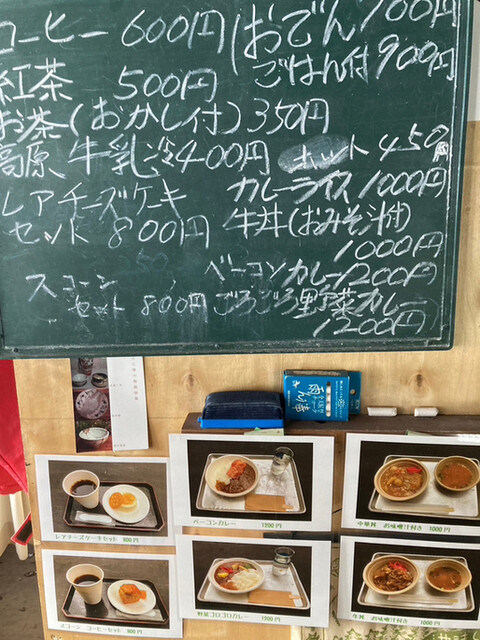 コーヒー 600円
おでん 700円
ごはん付 900円
紅茶 500円
お茶(おかし付) 350円
高原牛乳 冷 400円 ホット 450円
レアチーズケーキ
セット 800円
カレーライス 1000円
牛丼(おみそ汁付)
1000円
スコーン
セット 800円
ベーコンカレー 1200円
ごろごろ野菜カレー
1200円
レアチーズケーキセット 900円
ベーコンカレー 1200円
中華丼 お味噌汁付き 1000円
スコーン コーヒーセット 900円
野菜ゴロゴロカレー 1200円
牛丼 お味噌汁付き 1000円